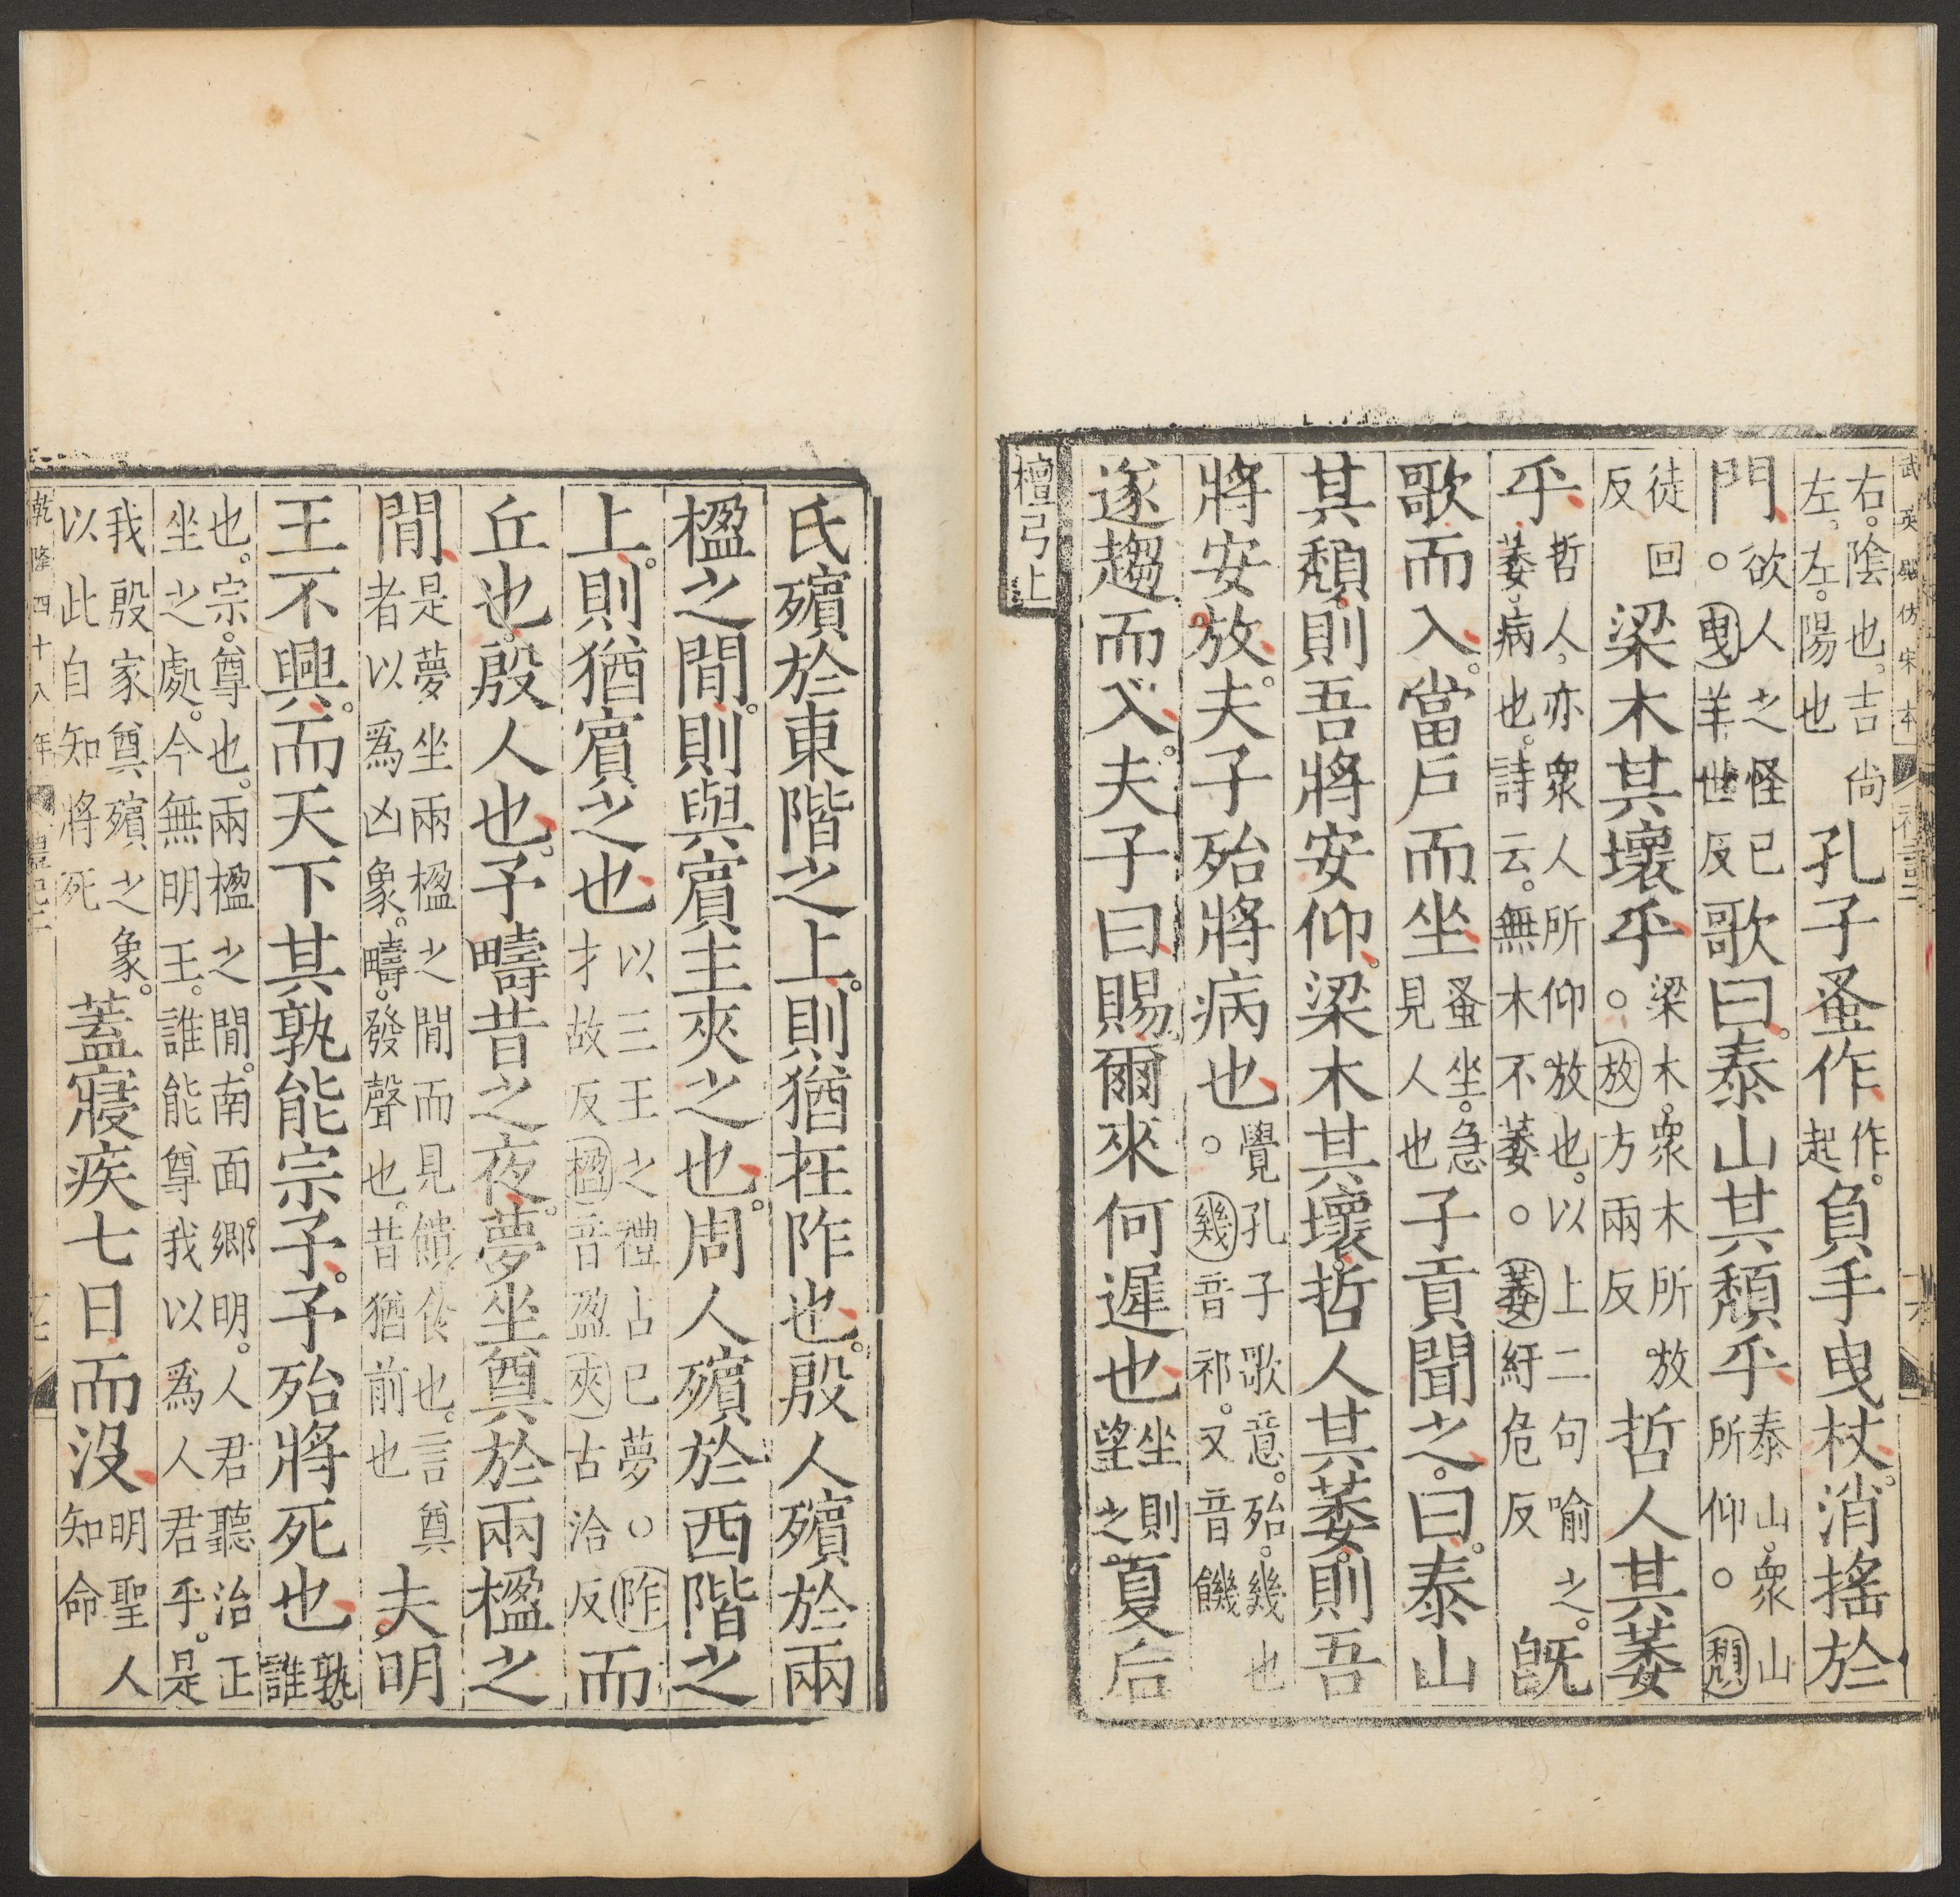 武英殿仿宋本 禮記二 十六
右。陰也。吉尚左。左。陽也孔子蚤作作。起。負手曳杖。消搖於
門欲人之怪已○曳羊世反歌曰。泰山其頹乎泰山。衆山所仰。○頹
徒回反梁木其壞乎梁木。衆木所放○放方兩反哲人其萎
乎哲人。亦衆人所仰放也。以上二句喻之。萎。病也。詩云。無木不萎。○萎紆危反既
歌而入。當戶而坐蚤坐。急見人也子貢聞之。曰。泰山
其頹。則吾將安仰。梁木其壞。哲人其萎。則吾
將安放。夫子殆將病也覺孔子歌意。殆。幾也○幾音祁。又音饑
遂趨而入。夫子曰。賜。爾來何遲也坐則望之。夏后
檀弓上
氏殯於東階之上。則猶在阼也。殷人殯於兩
楹之間。則與賓主夾之也。周人殯於西階之
上。則猶賓之也以三王之禮占已夢○阼才故反楹音盈夾古洽反而
丘也。殷人也。予疇昔之夜。夢坐奠於兩楹之
間是夢坐兩楹之間而見饋食也。言奠者以爲凶象。疇。發聲也。昔猶前也夫明
王不興。而天下其孰能宗予。予殆將死也孰。誰
也。宗。尊也。兩楹之間。南面鄉明。人君聽治正坐之處。今無明王。誰能尊我以爲人君乎。是
我殷家奠殯之象。以此自知將死蓋寢疾七日而沒明聖人知命
乾隆四十八年 禮記二